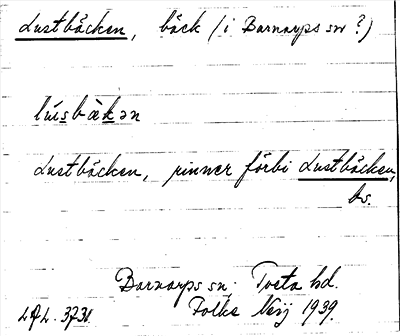 Lustbäcken, bäck (i Barnarps sn?)
lu̇sbäkən
Lustbäcken, rinner förbi Lustbäcken,
bs.
Barnarps sn; Tveta hd.
LAL. 3731 Folke Neij 1939